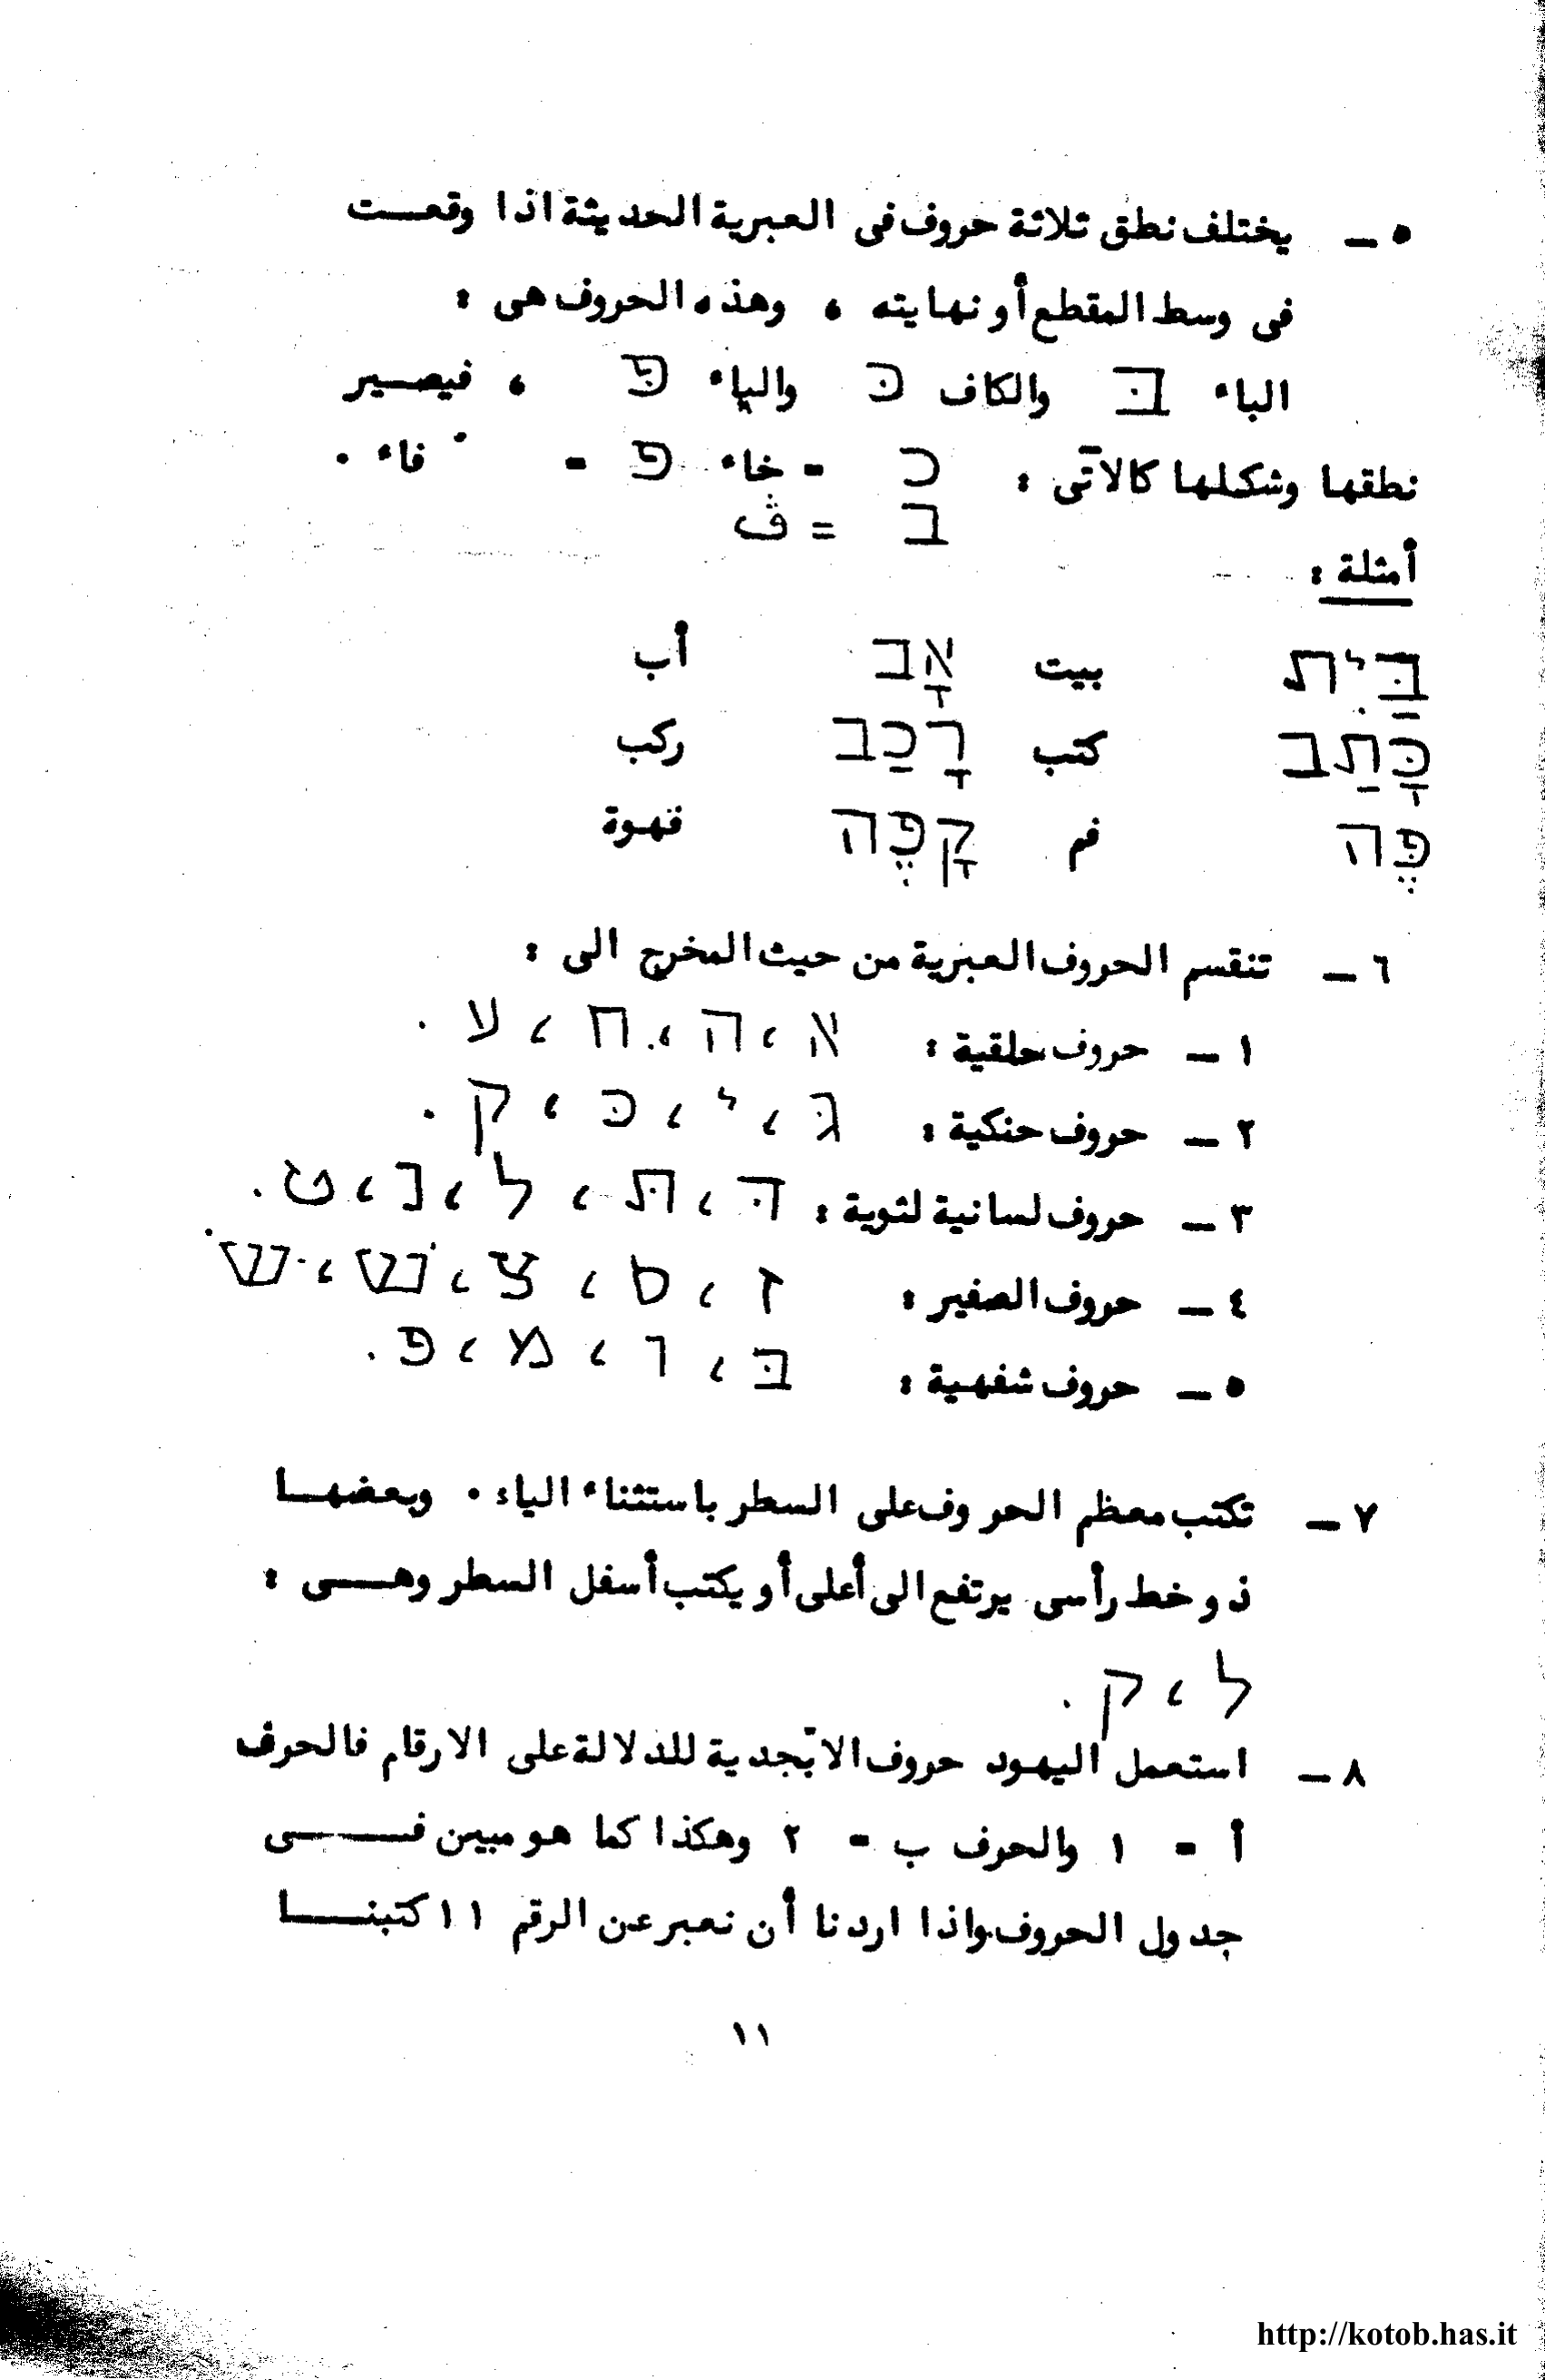 ٥ — يختلف نطق ثلاثة حروف فى العبرية الحديثة اذا وقعـــت
فى وسط المقطع أو نهايته ، وهذه الحروف هى :
الباء בּ والكاف כּ والپاء פּ ، فيصـــير
نطقها وشكلها كالآتى : כ = خاء פ = فاء .
ב = ڤ
أمثلة :
בַּיִת بيت אָב أب
כָּתַב كتب רָכַב ركب
פֶּה فم קָפֶה قهوة
٦ — تنقسم الحروف العبرية من حيث المخرج الى :
١ — حروف حلقية : א ، ה ، ח ، ע .
٢ — حروف حنكية : גּ ، י ، כּ ، ק .
٣ — حروف لسانية لثوية : דּ ، תּ ، ל ، נ ، ט .
٤ — حروف الصفير : ז ، ס ، צ ، שׁ ، שׂ
٥ — حروف شفهية : בּ ، ו ، מ ، פּ .
٧ — تكتب معظم الحروف على السطر باستثناء الياء . وبعضهـــا
ذو خط رأسى يرتفع الى أعلى أو يكتب أسفل السطر وهـــى :
ל ، ק .
٨ — استعمل اليهود حروف الابجدية للدلالة على الارقام فالحرف
أ = ١ والحرف ب = ٢ وهكذا كما هو مبين فـــــى
جدول الحروف واذا اردنا أن نعبر عن الرقم ١١ كتبنـــا
١١
http://kotob.has.it